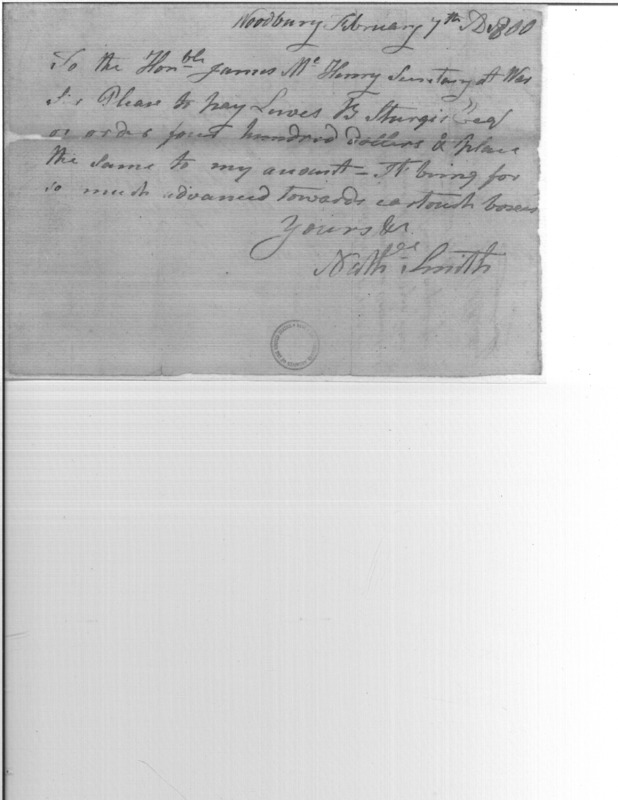 Woodbury February 7th AD 1800
To the Honble James Mc Henry Secretary at War
Sir Please to pay Lewes B Sturgis Esqr
or order four hundred dollars & place
the same to my account - It being for
so much advanced towards cartouch boxes
Yours &c
Nathl Smith